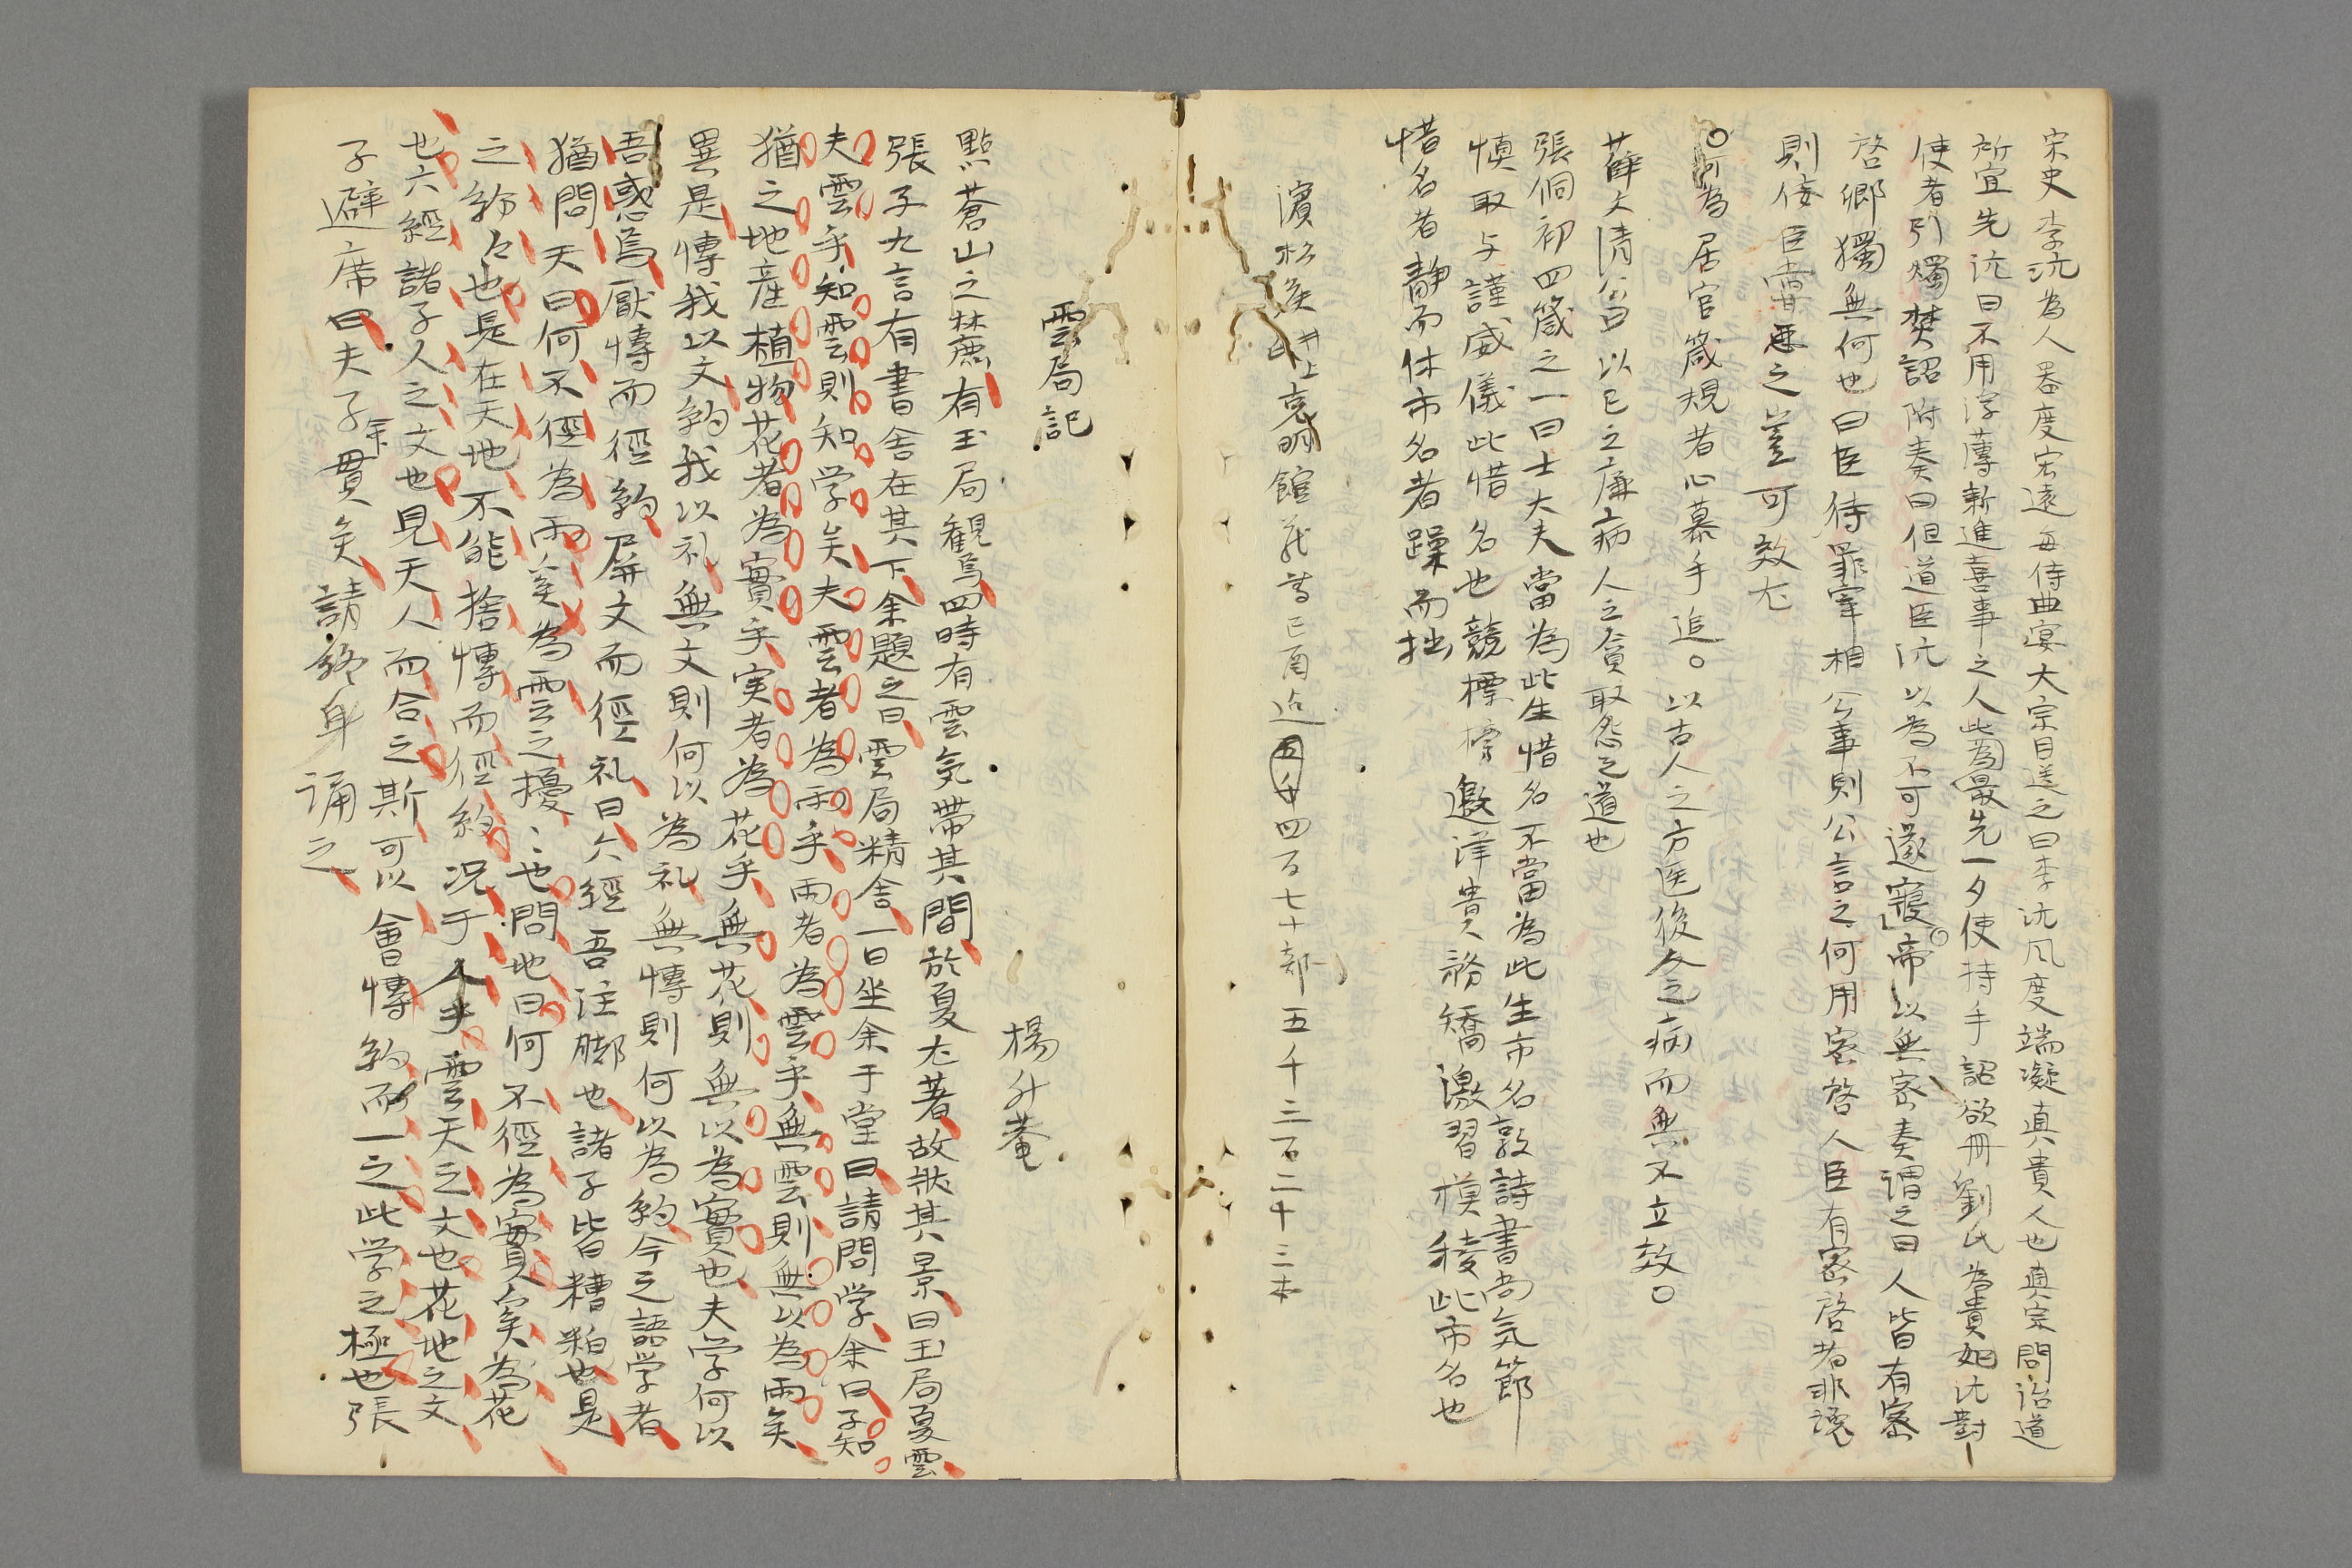 宋史李沆為人器度宏遠毎侍曲宴大宗目送之曰李沆风度端凝真貴人也真宗問治道
所宜先沆曰不用浮薄新進喜事之人此為最先一夕使持手詔欲冊劉氏為貴妃沆對
使者引燭焚詔附奏曰但道臣沆以為不可遂寝帝以無密奏謂之曰人皆有密
啓卿獨無何也曰臣待罪宰相公事則公言之何用密啓人臣有密啓者非讒
則佞臣嘗悪之豈可效尤
○可為居官箴規者心慕手追○以古人之方医後人之病而無不立效○
薛文清公曰以己之廉病人之貪取怨之道也
張侗初四箴之一曰士大夫當為此生惜名不當為此生市名敦詩書尚気節
慎取与謹威儀此惜名也競標榜邀津貴務矯激習模稜此市名也
惜名者静而休市名者躁而拙
濱松侯井上克明館蔵書已酉迄五千四百七十部五千三百二十三本
雲局記
楊升菴
點蒼山之麓有玉局観焉四時有雲気帯其間於夏尤著故狀其景曰玉局夏雲
張子九言有書舎在其下余題之曰雲局精舎一日坐余于堂曰請問学余曰子知
夫雲乎知雲則知学矣夫雲者為雨乎雨者為雲乎無雲則無以為雨矣
猶之地産植物花者為實乎実者為花乎無花則無以為實也夫学何以
異是博我以文約我以礼無文則何以為礼無博則何以為約今之語学者
吾惑焉厭博而徑約屏文而徑礼曰六經吾注脚也諸子皆糟粕也是
猶問天曰何不徑為雨奚為雲之擾〻也問地曰何不徑為實奚為花
之紛々也是在天地不能捨博而徑約况于人乎雲天之文也花地之文
也六經諸子人之文也見天人而合之斯可以會博約而一之此学之極也張
子避席曰夫子言貫矣請終身誦之